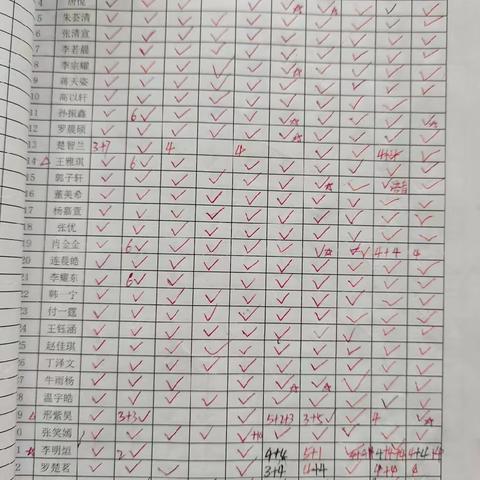 4
5 朱芸清 ✓ ✓ ✓ ✓ ✓ ✓ ✓ ✓ ✓ ✓
6 张清宣 ✓ ✓ ✓ ✓ ✓ ✓ ✓ ✓ ✓ ✓
7 李若晨 ✓ ✓ ✓ ✓ ✓ ✓ ✓ ✓ ✓ ✓
8 李宗耀 ✓ ✓ ✓ ✓ ✓ ✓☆ ✓ ✓ ✓ ✓
9 蒋天姿 ✓ ✓ ✓ ✓ ✓ ✓ ✓ ✓ ✓ ✓
10 高以轩 ✓ ✓ ✓ ✓ ✓ ✓ ✓ ✓ ✓ ✓
11 孙振鑫 ✓ 6✓ ✓ ✓ ✓ ✓☆ ✓ ✓ ✓ ✓☆
12 罗晨硕 ✓ ✓ ✓ ✓ ✓ ✓☆ ✓ ✓ ✓ ✓
13 楚智兰 3+7 ✓ 4 4 ✓ ✓
14 △ 王雅琪 ✓ 6✓ ✓ ✓ ✓ ✓ ✓ ✓ ✓ ✓
15 郭子轩 ✓ ✓ ✓ ✓ ✓ ✓ ✓☆ ✓ ✓
16 董美希 ✓ ✓ ✓ ✓ ✓ ✓ ✓ ✓ ✓ ✓
17 杨嘉萱 ✓ ✓ ✓ ✓ ✓ ✓ ✓ ✓ ✓ ✓
18 张优 ✓ ✓ ✓ ✓ ✓ ✓ ✓ ✓ ✓ ✓
19 肖金金 ✓ 6✓ ✓ ✓ ✓ ✓☆ 4+4 4
20 连晨皓 ✓ ✓ ✓ ✓ ✓ ✓ ✓ ✓ ✓ ✓
21 李耀东 ✓ 6✓ ✓ ✓ ✓ ✓ ✓ ✓ ✓ ✓
22 韩一宁 ✓ ✓ ✓ ✓ ✓ ✓ ✓ ✓ ✓ ✓
23 付一霆 ✓ ✓ ✓ ✓ ✓ ✓ ✓ ✓ ✓ ✓
24 王钰涵 ✓ ✓ ✓ ✓ ✓ ✓ ✓ ✓ ✓ ✓
25 赵佳琪 ✓ ✓ ✓ ✓ ✓ ✓ ✓ ✓ ✓ ✓
26 丁泽文 ✓ ✓ ✓ ✓ ✓ ✓ ✓ ✓ ✓ ✓
7 牛雨杨 ✓ ✓ ✓ ✓ ✓ ✓☆ ✓☆ ✓ ✓ ✓
8 温宇皓 ✓ ✓ ✓ ✓ ✓ ✓ ✓ ✓ ✓ ✓
9 △ 邢紫昊 ✓ 3+3✓ ✓ 5+2+3 3+5✓ ✓ 4 ✓☆
0 张笑嫣 ✓ ✓ ✓ ✓ ✓ ✓ ✓ ✓ ✓ ✓
1 李明烜 ✓ 2✓ ✓ ✓ ✓ 4+4 5+1
2 罗楚茗 ✓ ✓ ✓ ✓ ✓ 3+4 4+4 4+4 4